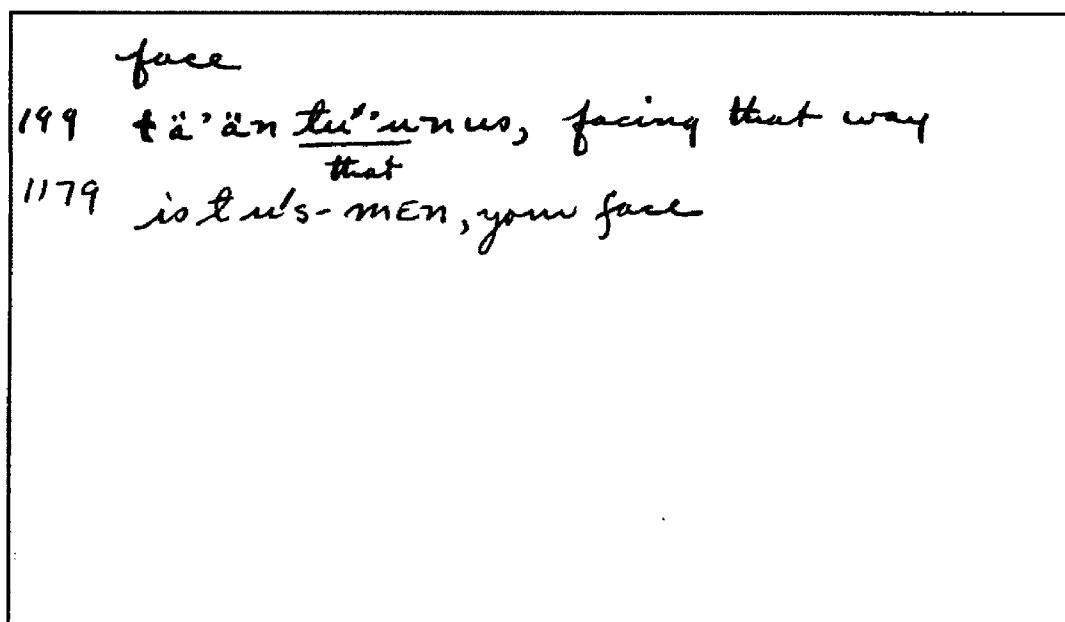 face
199 tä'än tu''unus, facing that way
that
1179 is tu's-mEn, your face